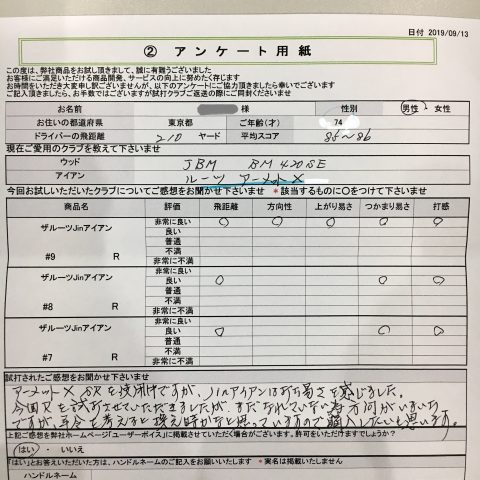 日付 2019/09/13
② アンケート用紙
この度は、弊社商品をお試し頂きまして、誠に有難うございました
お客様にご満足いただける商品開発、サービスの向上に努めたく存じます
お時間をいただき大変申し訳ございませんが、以下のアンケートにご協力頂きましたら幸いでございます
ご記入頂きましたら、お手数ではございますが試打クラブご返送の際にご同封くださいませ
お名前 様 性別 男性・女性
お住いの都道府県 東京都 ご年齢(才) 74
ドライバーの飛距離 210 ヤード 平均スコア 85~86
現在ご愛用のクラブを教えて下さいませ
ウッド JBM BM420SE
アイアン ルーツ アーメットX
今回お試しいただいたクラブについてご感想をお聞かせ下さいませ *該当するものに○をつけて下さいませ
商品名 評価 飛距離 方向性 上がり易さ つかまり易さ 打感
ザルーツJinアイアン 非常に良い ○ ○ ○ ○ ○
良い
普通
不満
#9 R 非常に不満
ザルーツJinアイアン 非常に良い ○ ○ ○
良い
普通
不満
#8 R 非常に不満
ザルーツJinアイアン 非常に良い ○ ○ ○
良い
普通
不満
#7 R 非常に不満
試打されたご感想をお聞かせ下さいませ
アーメットX を使用中ですが、Jinアイアンは打ち易さを感じました。
今回Rを試打させていただきましたが、まだなれていない為方向がいまいち
ですが、年令を考えると換え時かなと思っていますので購入したいと思います。
上記ご感想を弊社ホームページ「ユーザーボイス」に掲載させていただく場合がございます。許可をいただけますでしょうか?
はい ・ いいえ
「はい」とお答えいただいた方は、ハンドルネームのご記入をお願いいたします *実名は掲載いたしません
ハンドルネーム